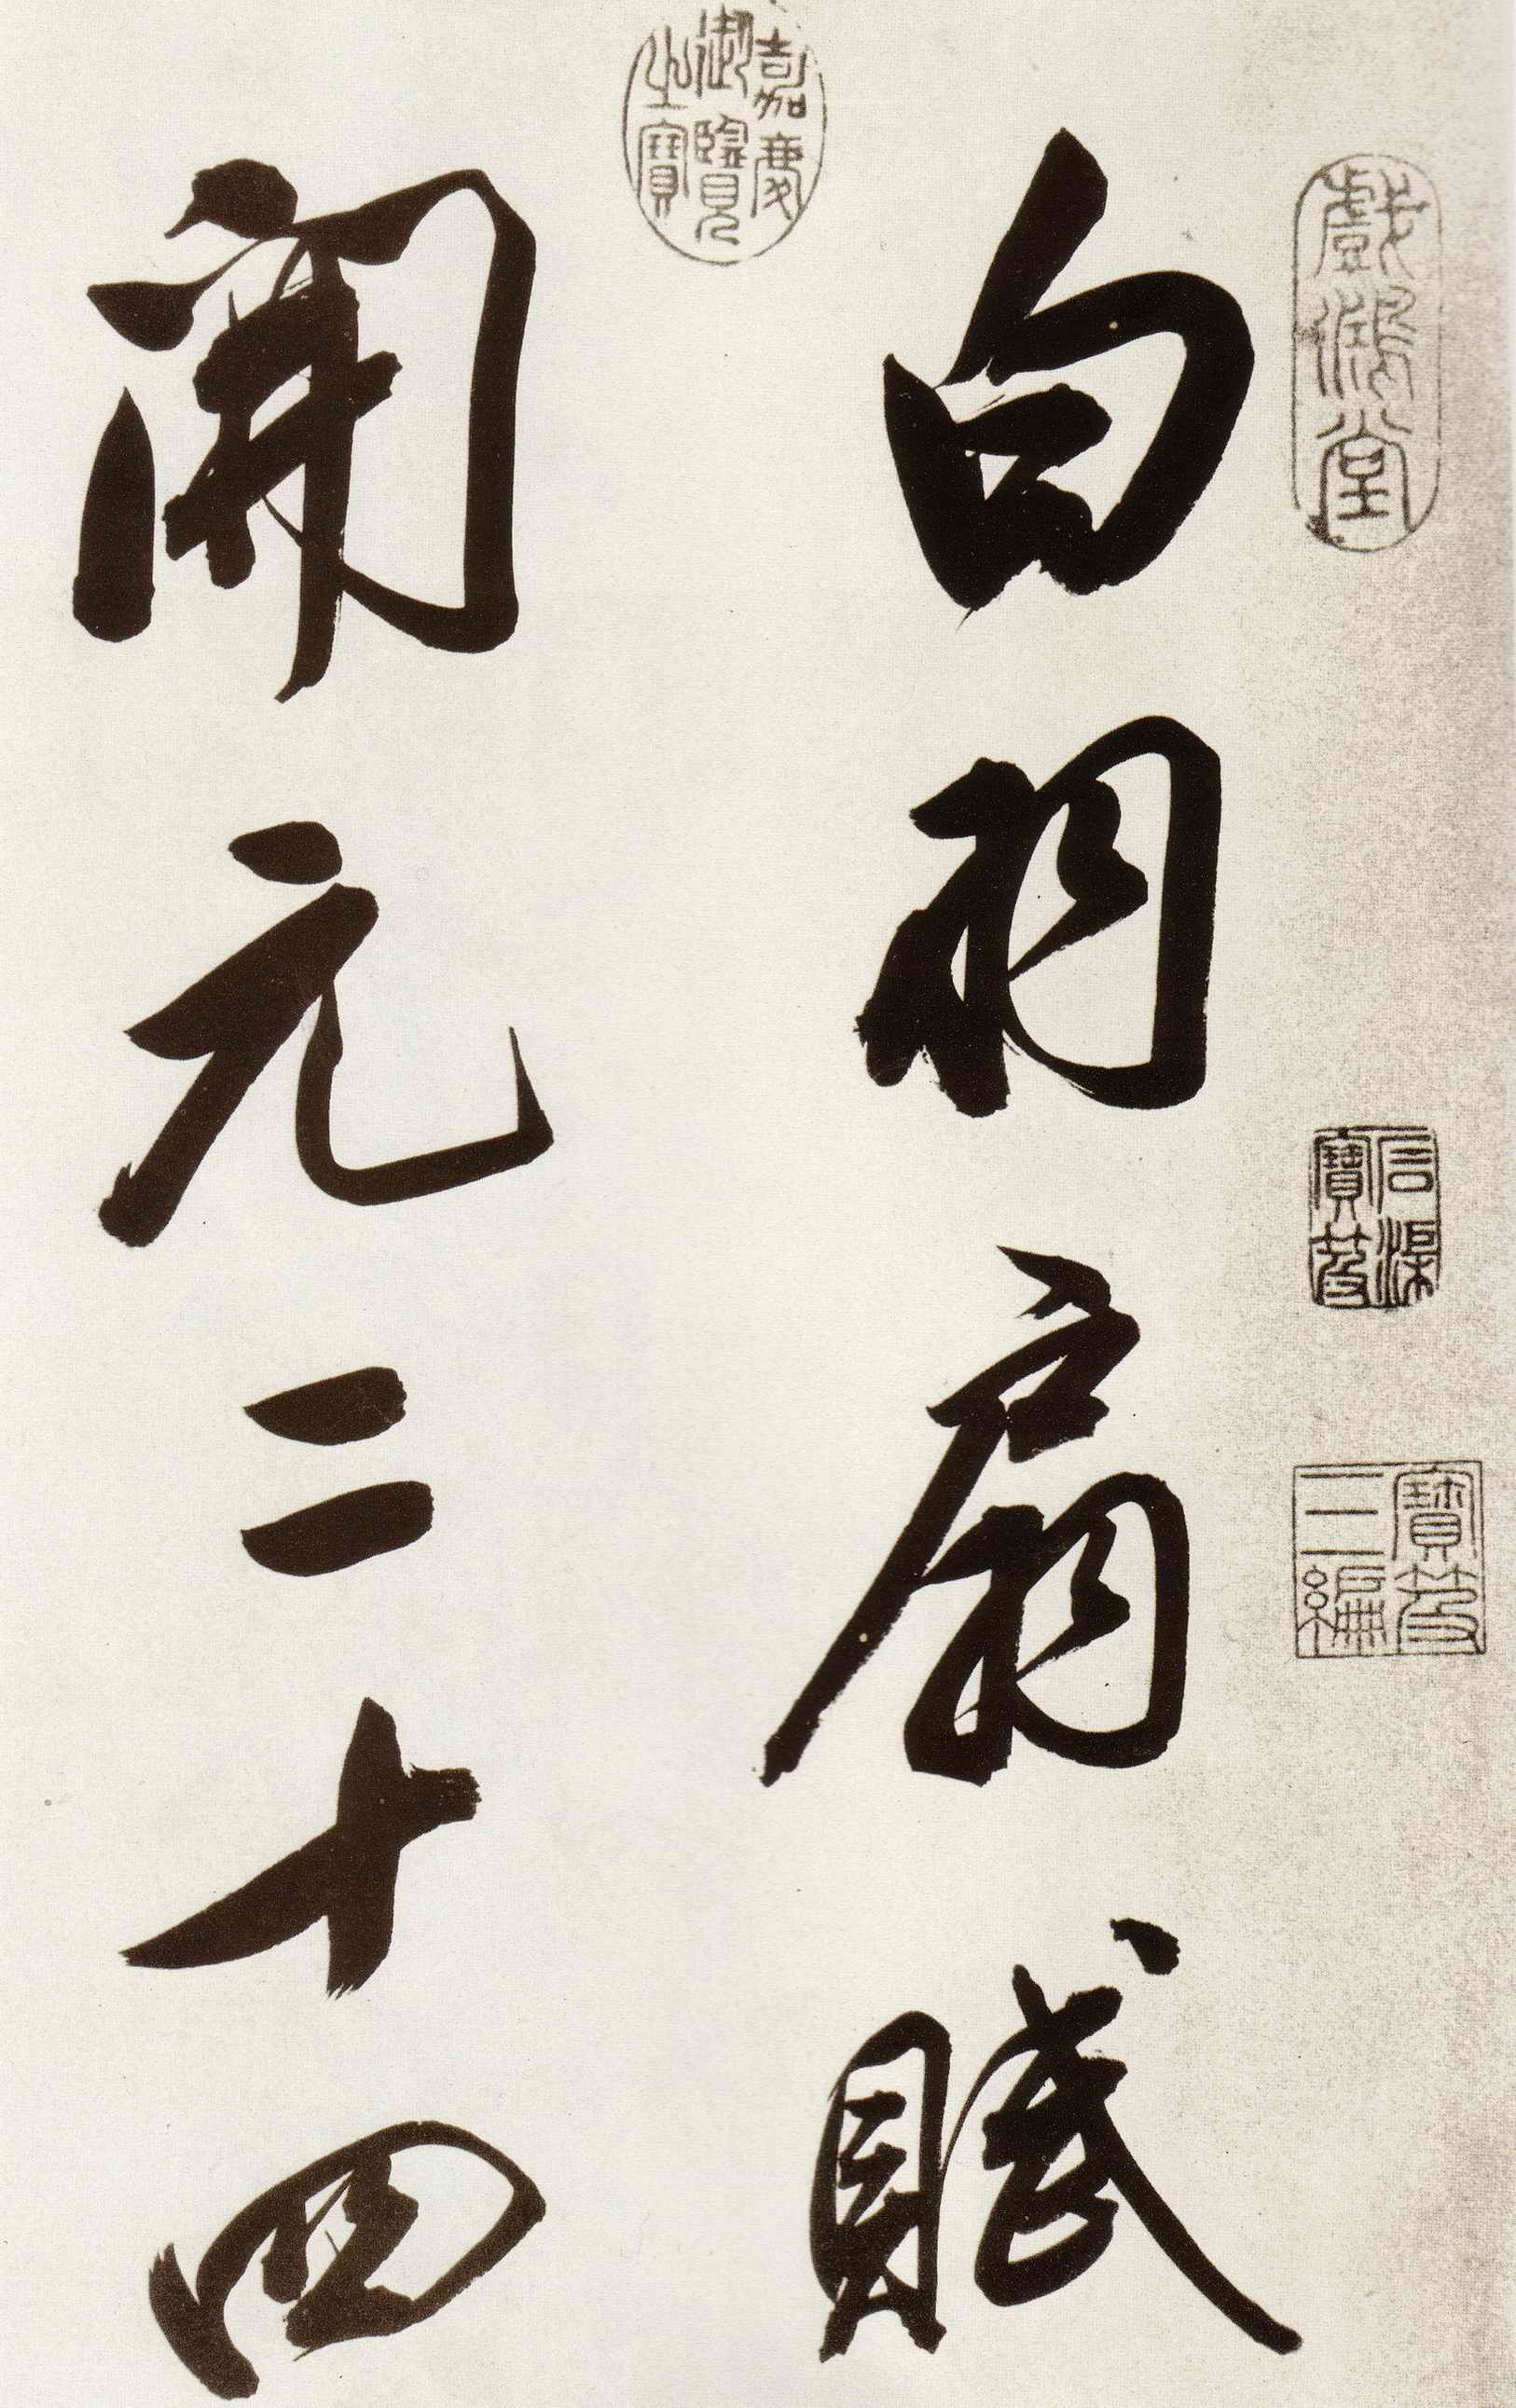 白羽扇賦
開元二十四
嘉慶
御覽
之寶
戲鴻堂
石渠
寶笈
寶笈
三編